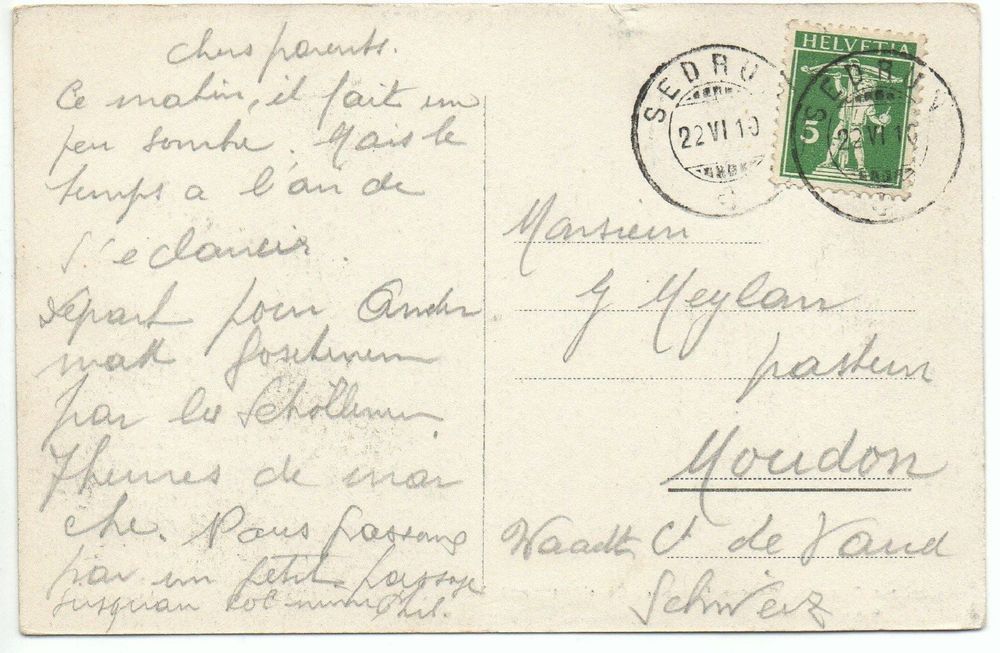 Chers parents.
Ce matin, il fait un
peu sombre. Mais le
temps a l'air de
s'eclaircir.
Départ pour Ander
matt Goschenen
par les Schöllenen
7 heures de mar
che. Nous passons
par un petit passage
jusqu'au col
HELVETIA
5
SEDRUN
22 VI 10
SEDRUN
22 VI 10
Monsieur
G Meylan
pasteur
Moudon
Waadt Ct de Vaud
Schweiz